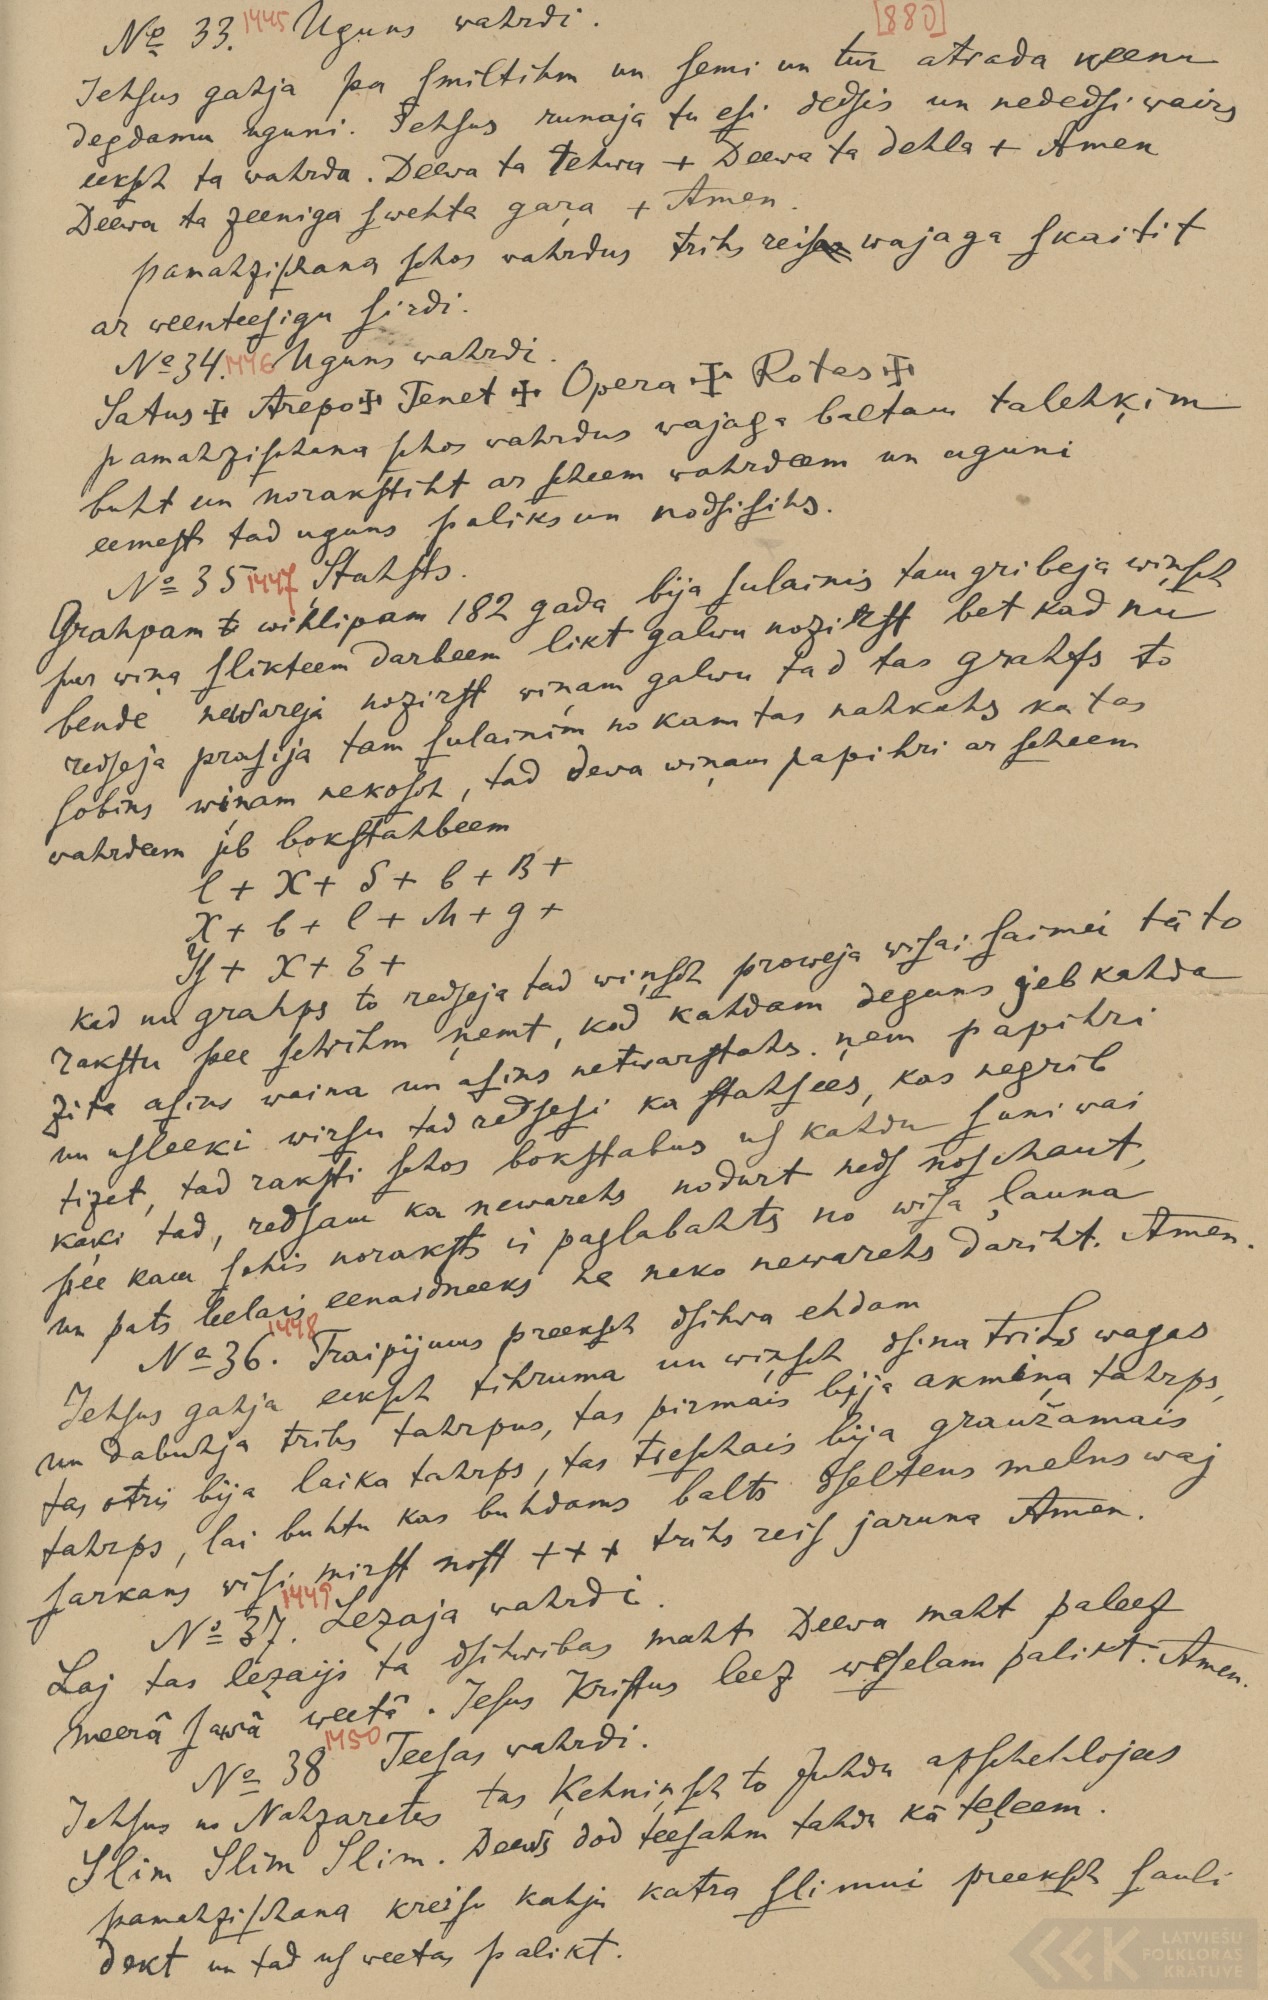 [880]
№ 33. 1445 Uguns wahrdi.
Jehsus gahja pa smiltihm un semi un tur atrada weenu
degdamu uguni. Jehsus runaja tu esi dedsis un nededsi wairs
eeksch ta wahrda. Deewa ta tehwa + Deewa ta dehla + Amen
Deewa ta zeeniga swehta gaŗa + Amen.
pamahzischana schos wahrdus trihs reisas wajaga skaitit
ar weenteesigu sirdi.
№ 34. 1446 Uguns wahrdi.
Satus ✠ Arepo ✠ Tenet ✠ Opera ✠ Rotas ✠
pamahzischana schos wahrdus wajaga baltam talehķim
buht un norakstiht ar scheem wahrdeem un uguni
eemest tad uguns paliks un nodsisihs.
№ 35 1447 Stahsts.
Grahpam wihlipam 182 gada bija sulainis tam gribeja wiņsch
par wiņa slikteem darbeem likt galwu nozirst bet kad nu
bende newareja nozirst wiņam galwu tad tas grahfs to
redseja prasija tam sulainim no kam tas nahkahs ka tas
sobins wiņam nekosch, tad dewa wiņam papihri ar scheem
wahrdeem jeb bokstahbeem
l + X + S + b + B +
X + b + l + M + g +
Y + X + E +
Kad nu grahps to redseja tad wiņsch proweja wisai saimei tä to
rakstu pee sehwihm ņemt, kad kahdam deguns jeb kahda
zita asins waina un asins netwarstahs. ņem papihri
un usleeki wirsu tad redsesi ka stahsees, kas negrib
tizet, tad raksti schos bokstabus us kahdu suni wai
kaķi tad, redsam ka newarehs nodurt neds noschaut,
pee kam schis noraksts ir paglabahts no wisa ļauna
un pats leelais eenaidneeks ne neko newarehs dariht. Amen.
№ 36. 1448 Traipijums preeksch dsihwa ehdam
Jehsus gahja eeksch tihruma un wiņsch dsina trihs wagas
un dabuhja trihs tahrpus, tas pirmais bija akmiņa tahrps,
tas otris bija laika tahrps, tas treschais bija graužamais
tahrps, lai buhtu kas buhdams balts dseltens melns waj
sarkans wisi mirst nost + + + trihs reis jaruna Amen.
№ 37. 1449 Lezaja wahrdi.
Laj tas lezaijs ta dsihwibas maht Deewa maht paleez
meerâ sawâ weetâ. Jesus Kristus leez weselam palikt. Amen.
№ 38 1450 Teesas wahrdi.
Jehsus no Nahzaretes tas Ķehniņsch to Juhdu apschehlojees
Slim Slim Slim. Deews dod teesahm tahdu kä teļeem.
pamahzischana kreisu kahju katra slimui preeksch sauli
dekt un tad us weetas palikt.
LATVIEŠU
FOLKLORAS
KRĀTUVE